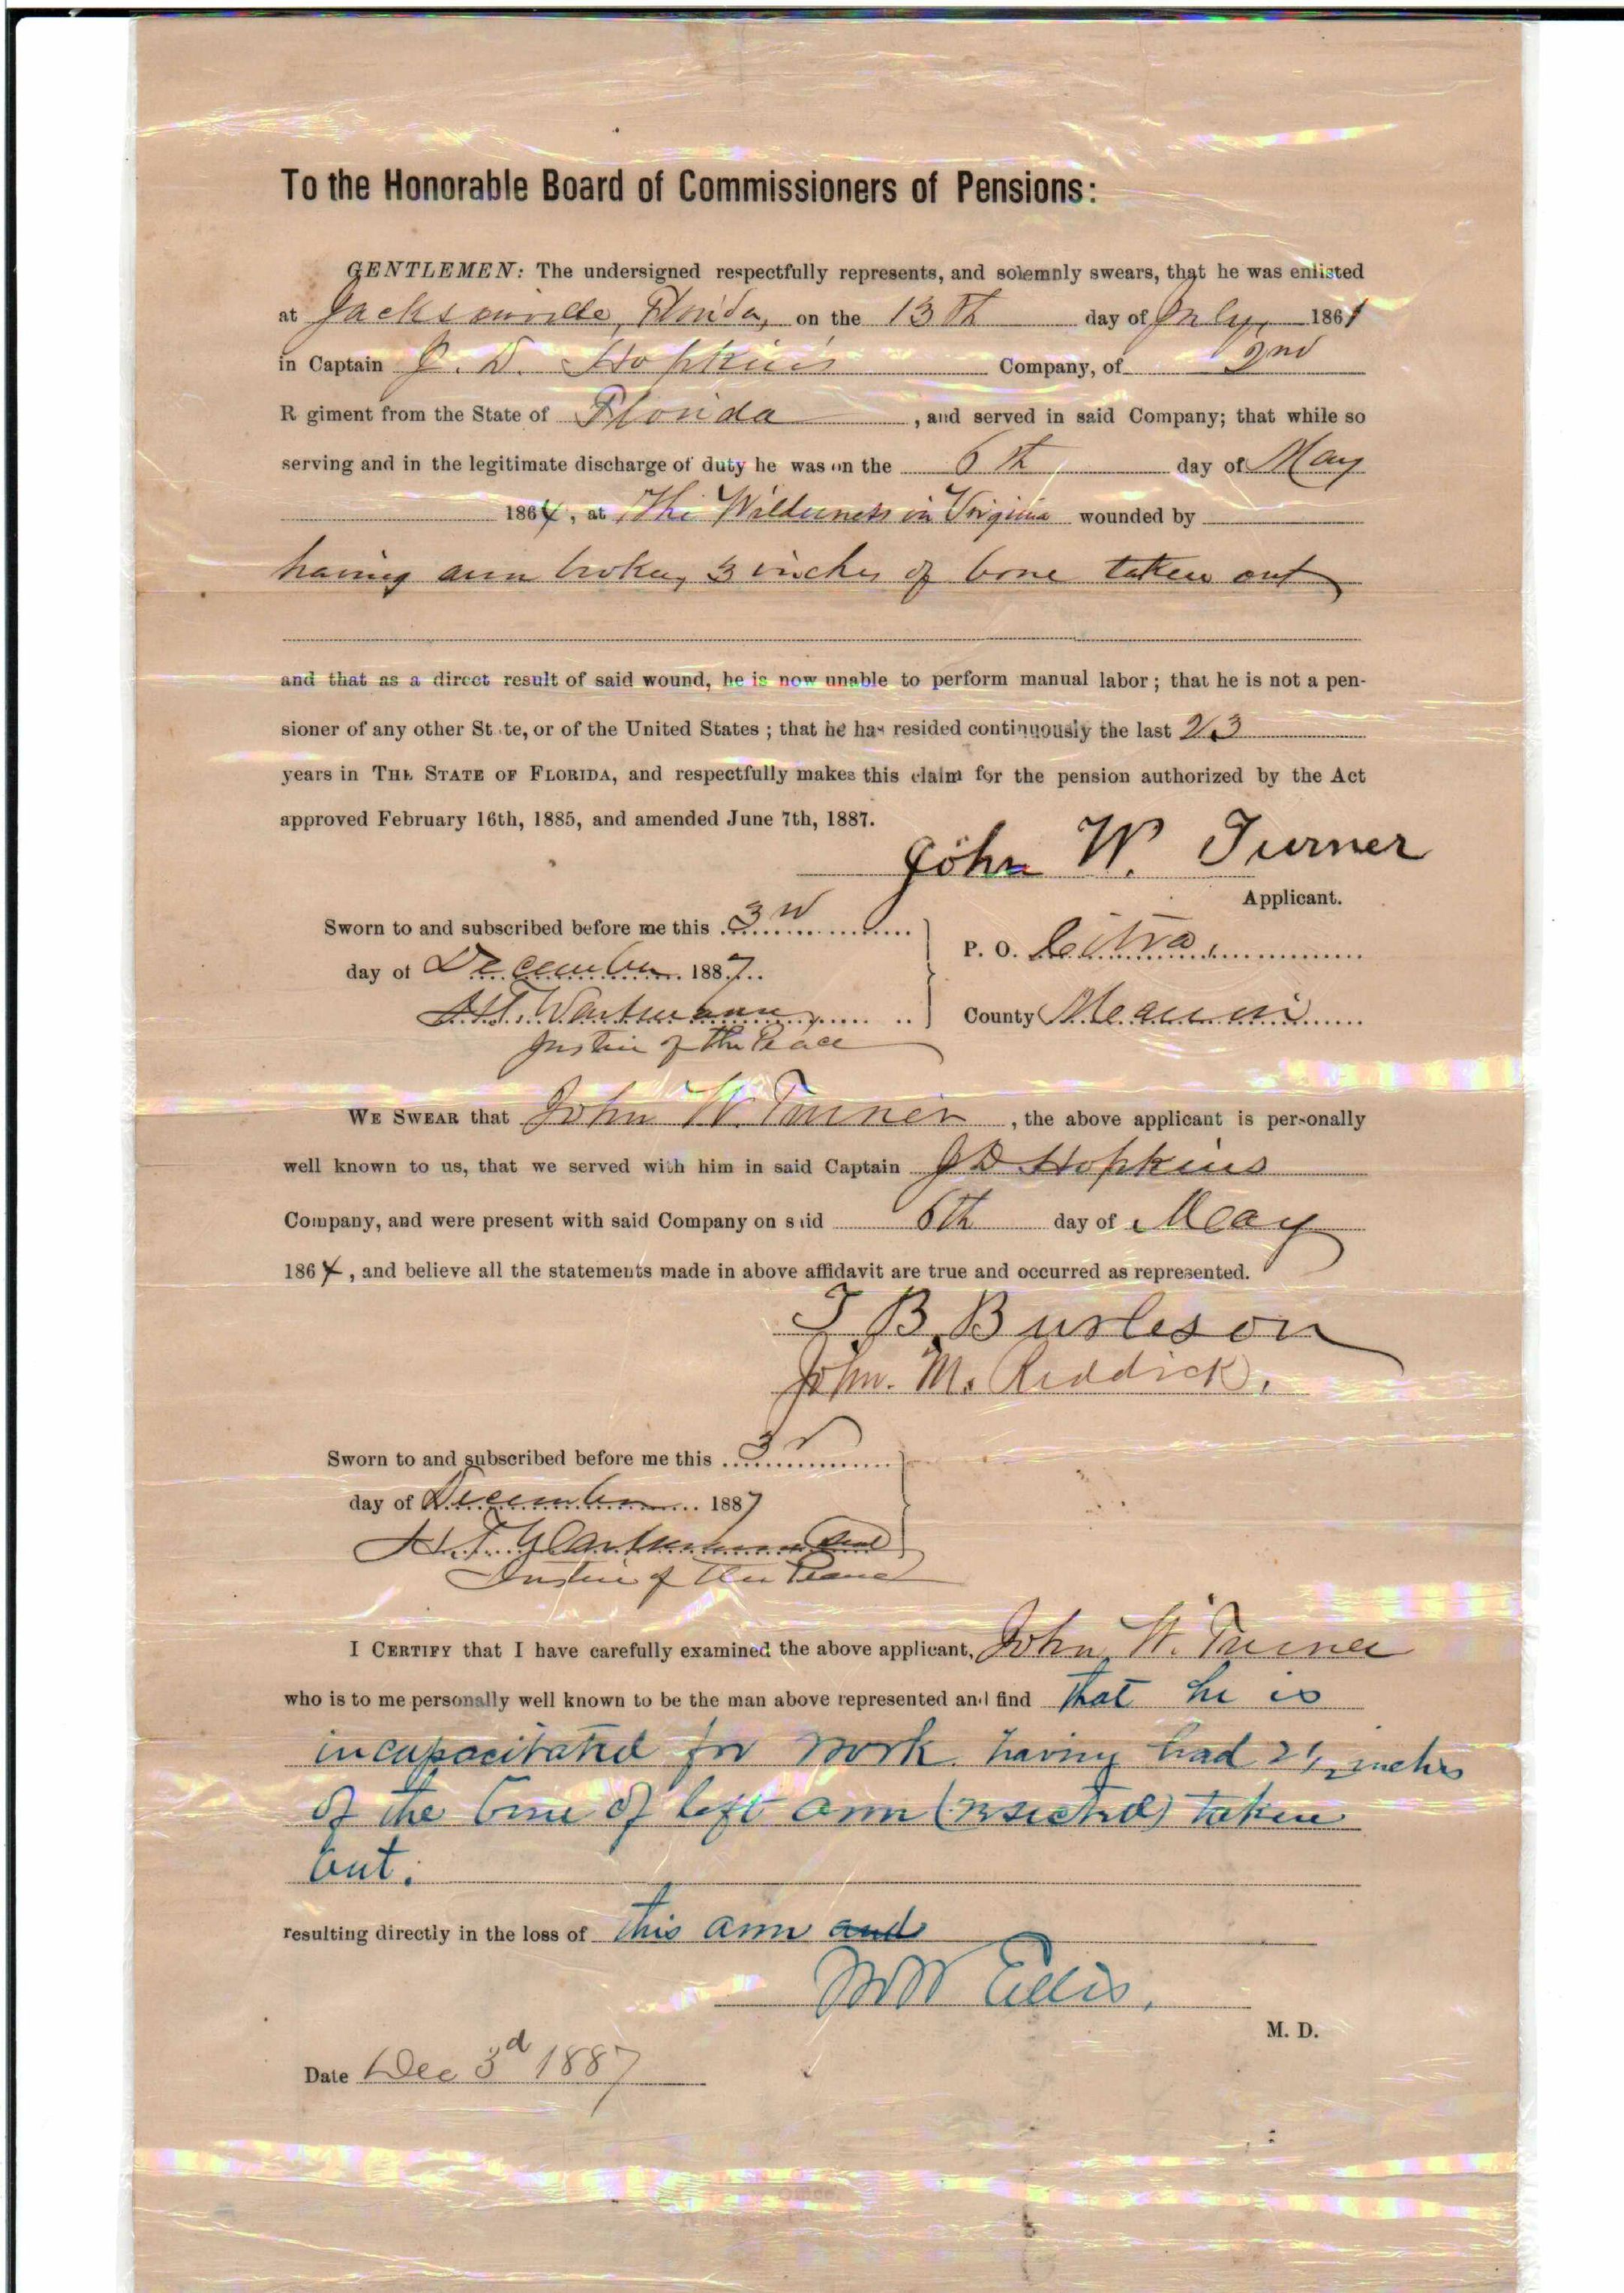 To the Honorable Board of Commissioners of Pensions:
GENTLEMEN: The undersigned respectfully represents, and solemnly swears, that he was enlisted
at Jacksonville, Florida, on the 13th day of July, 1861
in Captain J. D. Hopkins Company, of 2nd
R giment from the State of Florida, and served in said Company; that while so
serving and in the legitimate discharge of duty he was on the 6th day of May
1864, at The Wilderness in Virginia wounded by
having arm broken, 3 inches of bone taken out
and that as a direct result of said wound, he is now unable to perform manual labor; that he is not a pen-
sioner of any other St te, or of the United States; that he has resided continuously the last 23
years in THE STATE OF FLORIDA, and respectfully makes this claim for the pension authorized by the Act
approved February 16th, 1885, and amended June 7th, 1887.
John W. Turner
Applicant.
Sworn to and subscribed before me this 3rd
day of December 1887
P. O. Citra,
H.T. Wartmann
County Marion
Justice of the Peace
WE SWEAR that John W. Turner, the above applicant is personally
well known to us, that we served with him in said Captain J D Hopkins
Company, and were present with said Company on said 6th day of May
1864, and believe all the statements made in above affidavit are true and occurred as represented.
T. B. Burleson
John. M. Reddick.
Sworn to and subscribed before me this 3d
day of December 1887
H. T. Wartmann Seal
Justice of the Peace
I CERTIFY that I have carefully examined the above applicant, John W. Turner
who is to me personally well known to be the man above represented and find that he is
incapacitated for work. having had 2 1/2 inches
of the bone of left arm (resected) taken
out.
resulting directly in the loss of this arm and
W Ellis.
M. D.
Date Dec 3d 1887